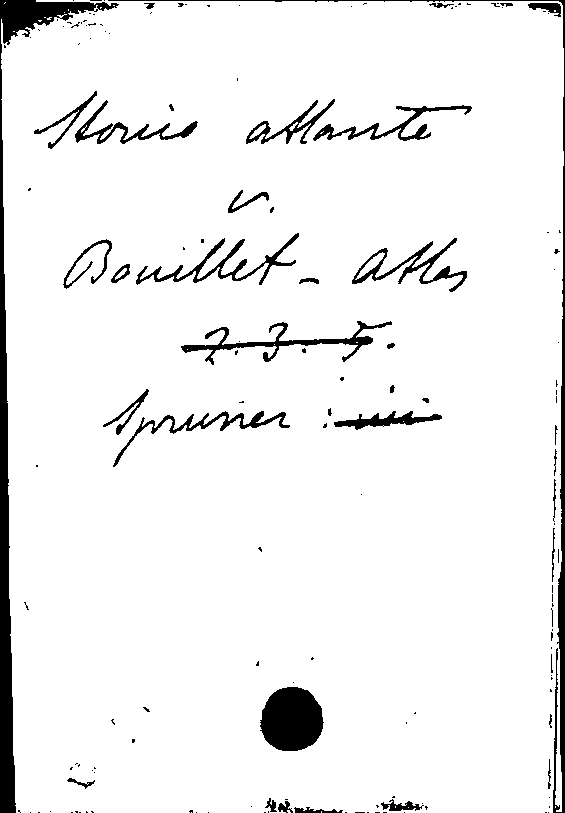 Storico atlante
v.
Bouillet - Atlas
2. 3. 5.
Spruner : iii